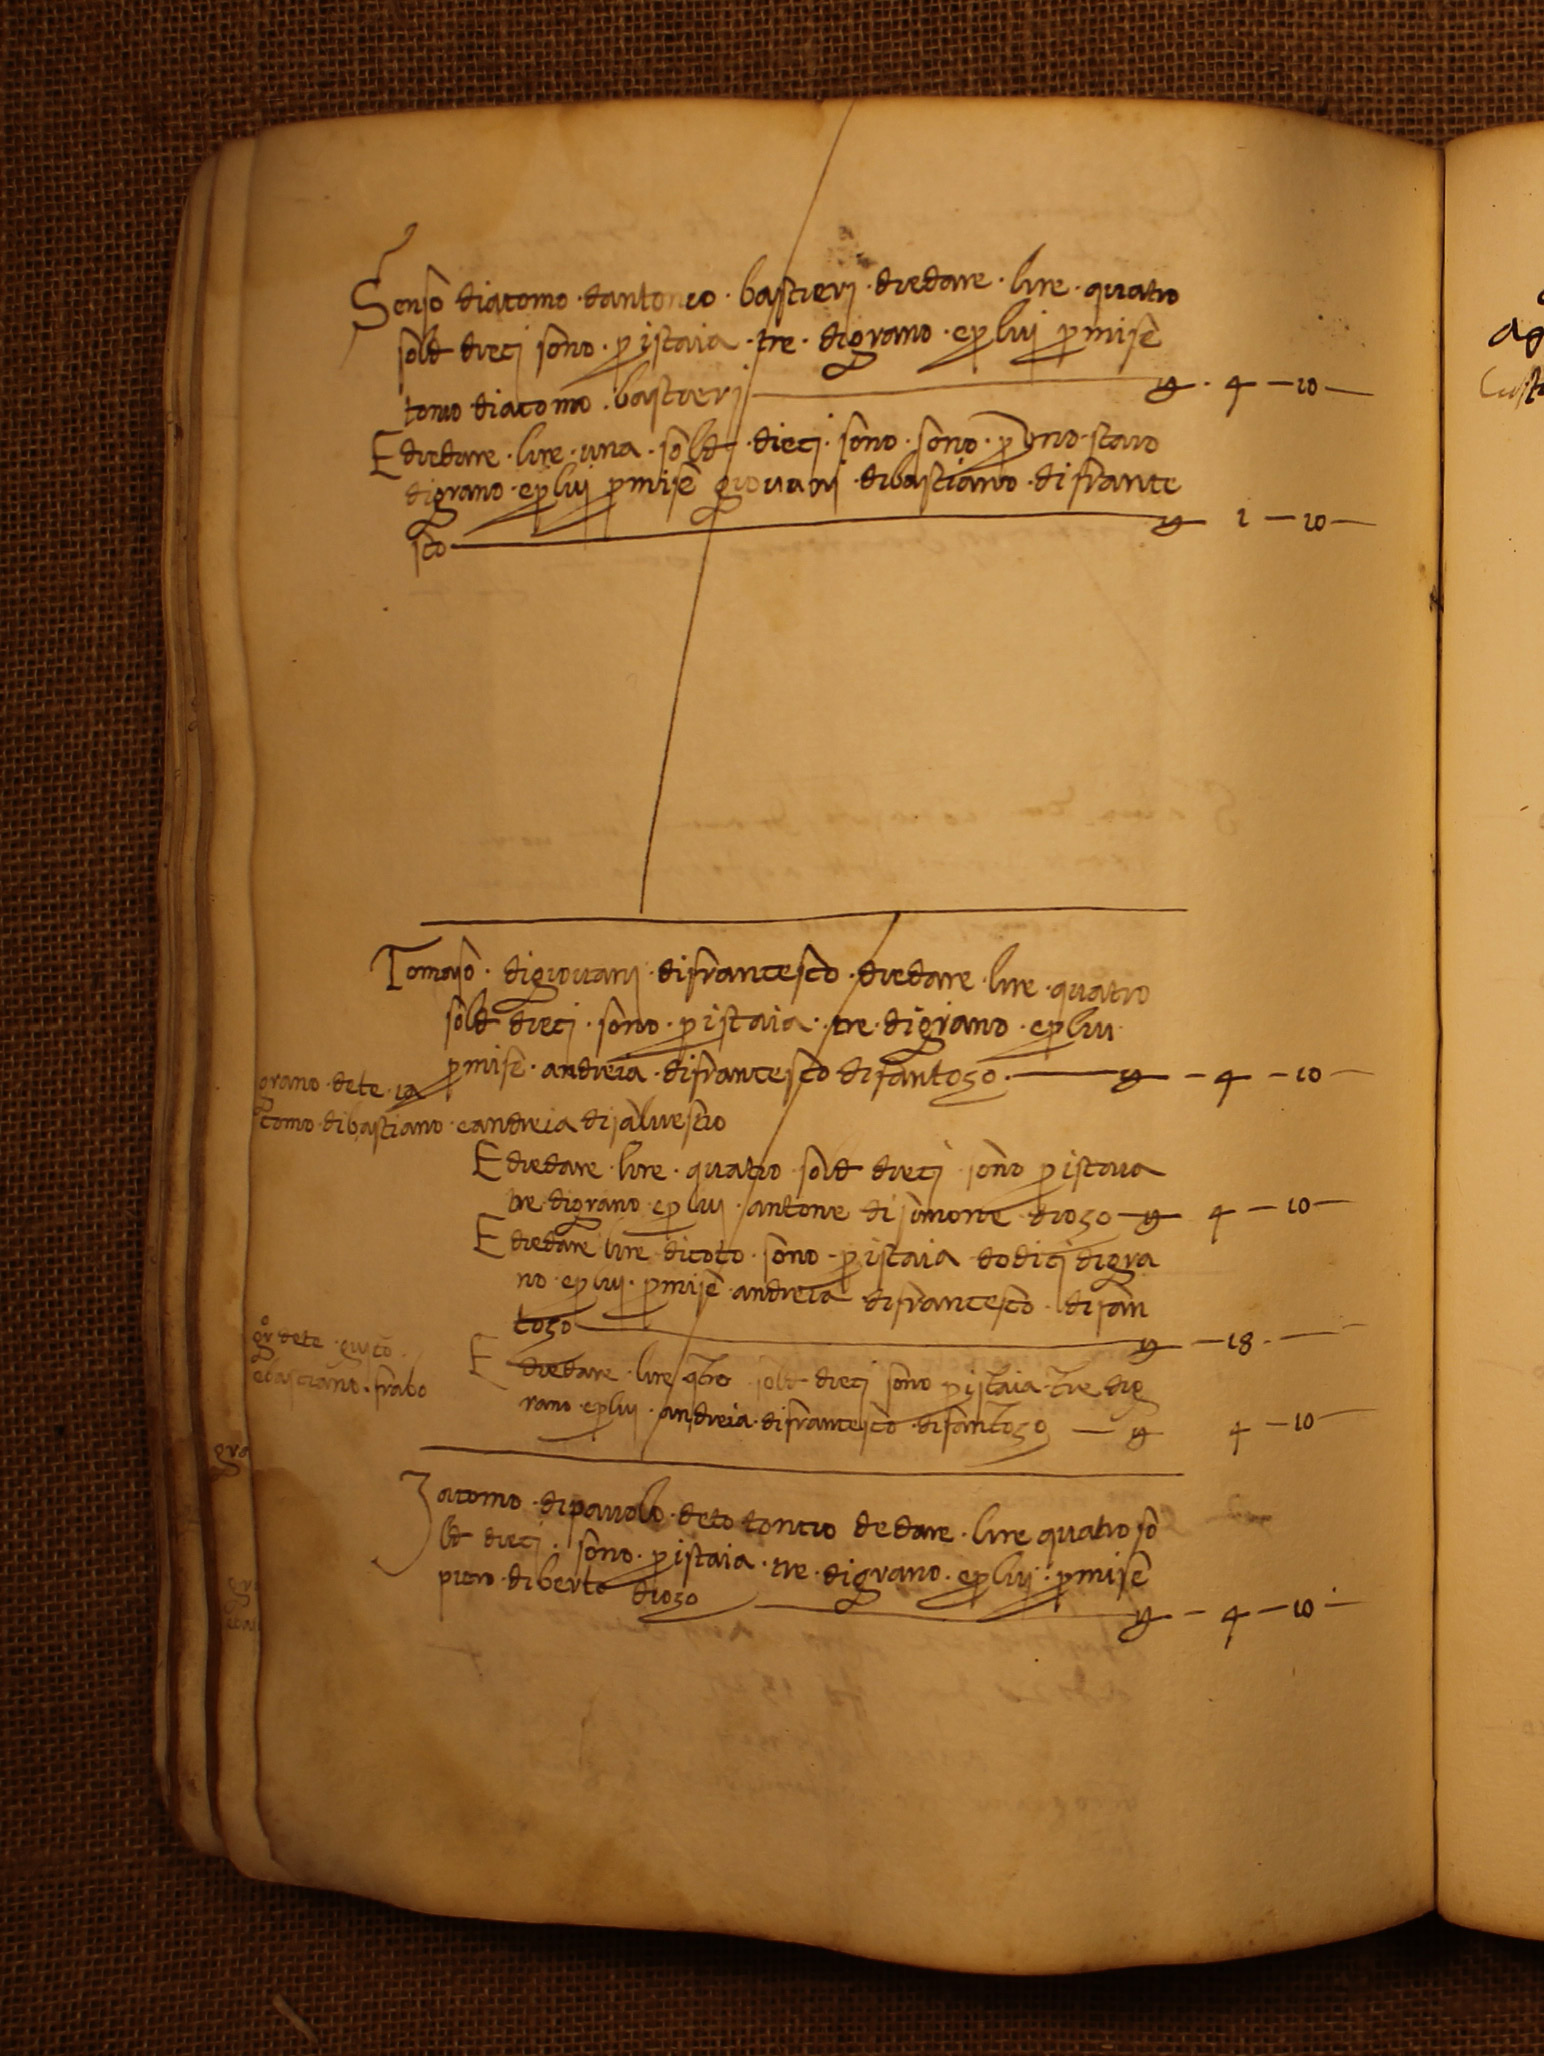 Senso diacomo dantonio bastieri diedare lire quatro
sold dieci sono p istaia tre digrano e p lui pmise
tonio diacomo bastieri £ 4 — 10 —
E diedare lire una sold dieci sono sono p uno staio
digrano e p lui pmise giovanj dibastiano di france
sco £ 1 — 10 —
Tomaso digiovanj difrancesco diedare lire quatro
sold dieci sono p istaia tre digrano e p lui
pmise andreia difrancesco disantoso £ — 4 — 10 —
grano dete ia
como dibastiano eandreia disalvestro
E diedare lire quatro sold dieci sono p istaia
tre digrano e p lui antone disimone dioso £ 4 — 10 —
E diedare lire dicoto sono p istaia dodici digra
no e p lui pmise andreia difrancesco disan
toso £ — 18 —
gr dete guito
ebastiano frabo
E diedare lire qtro sold dieci sono p istaia tre dig
rano e p lui andreia difrancesco disantoso — £ 4 — 10 —
gra
Iacomo dipavolo deto toncio dedare lire quatro so
ld dieci sono p istaia tre digrano e p lui pmise
piero diberto dioso £ — 4 — 10 —